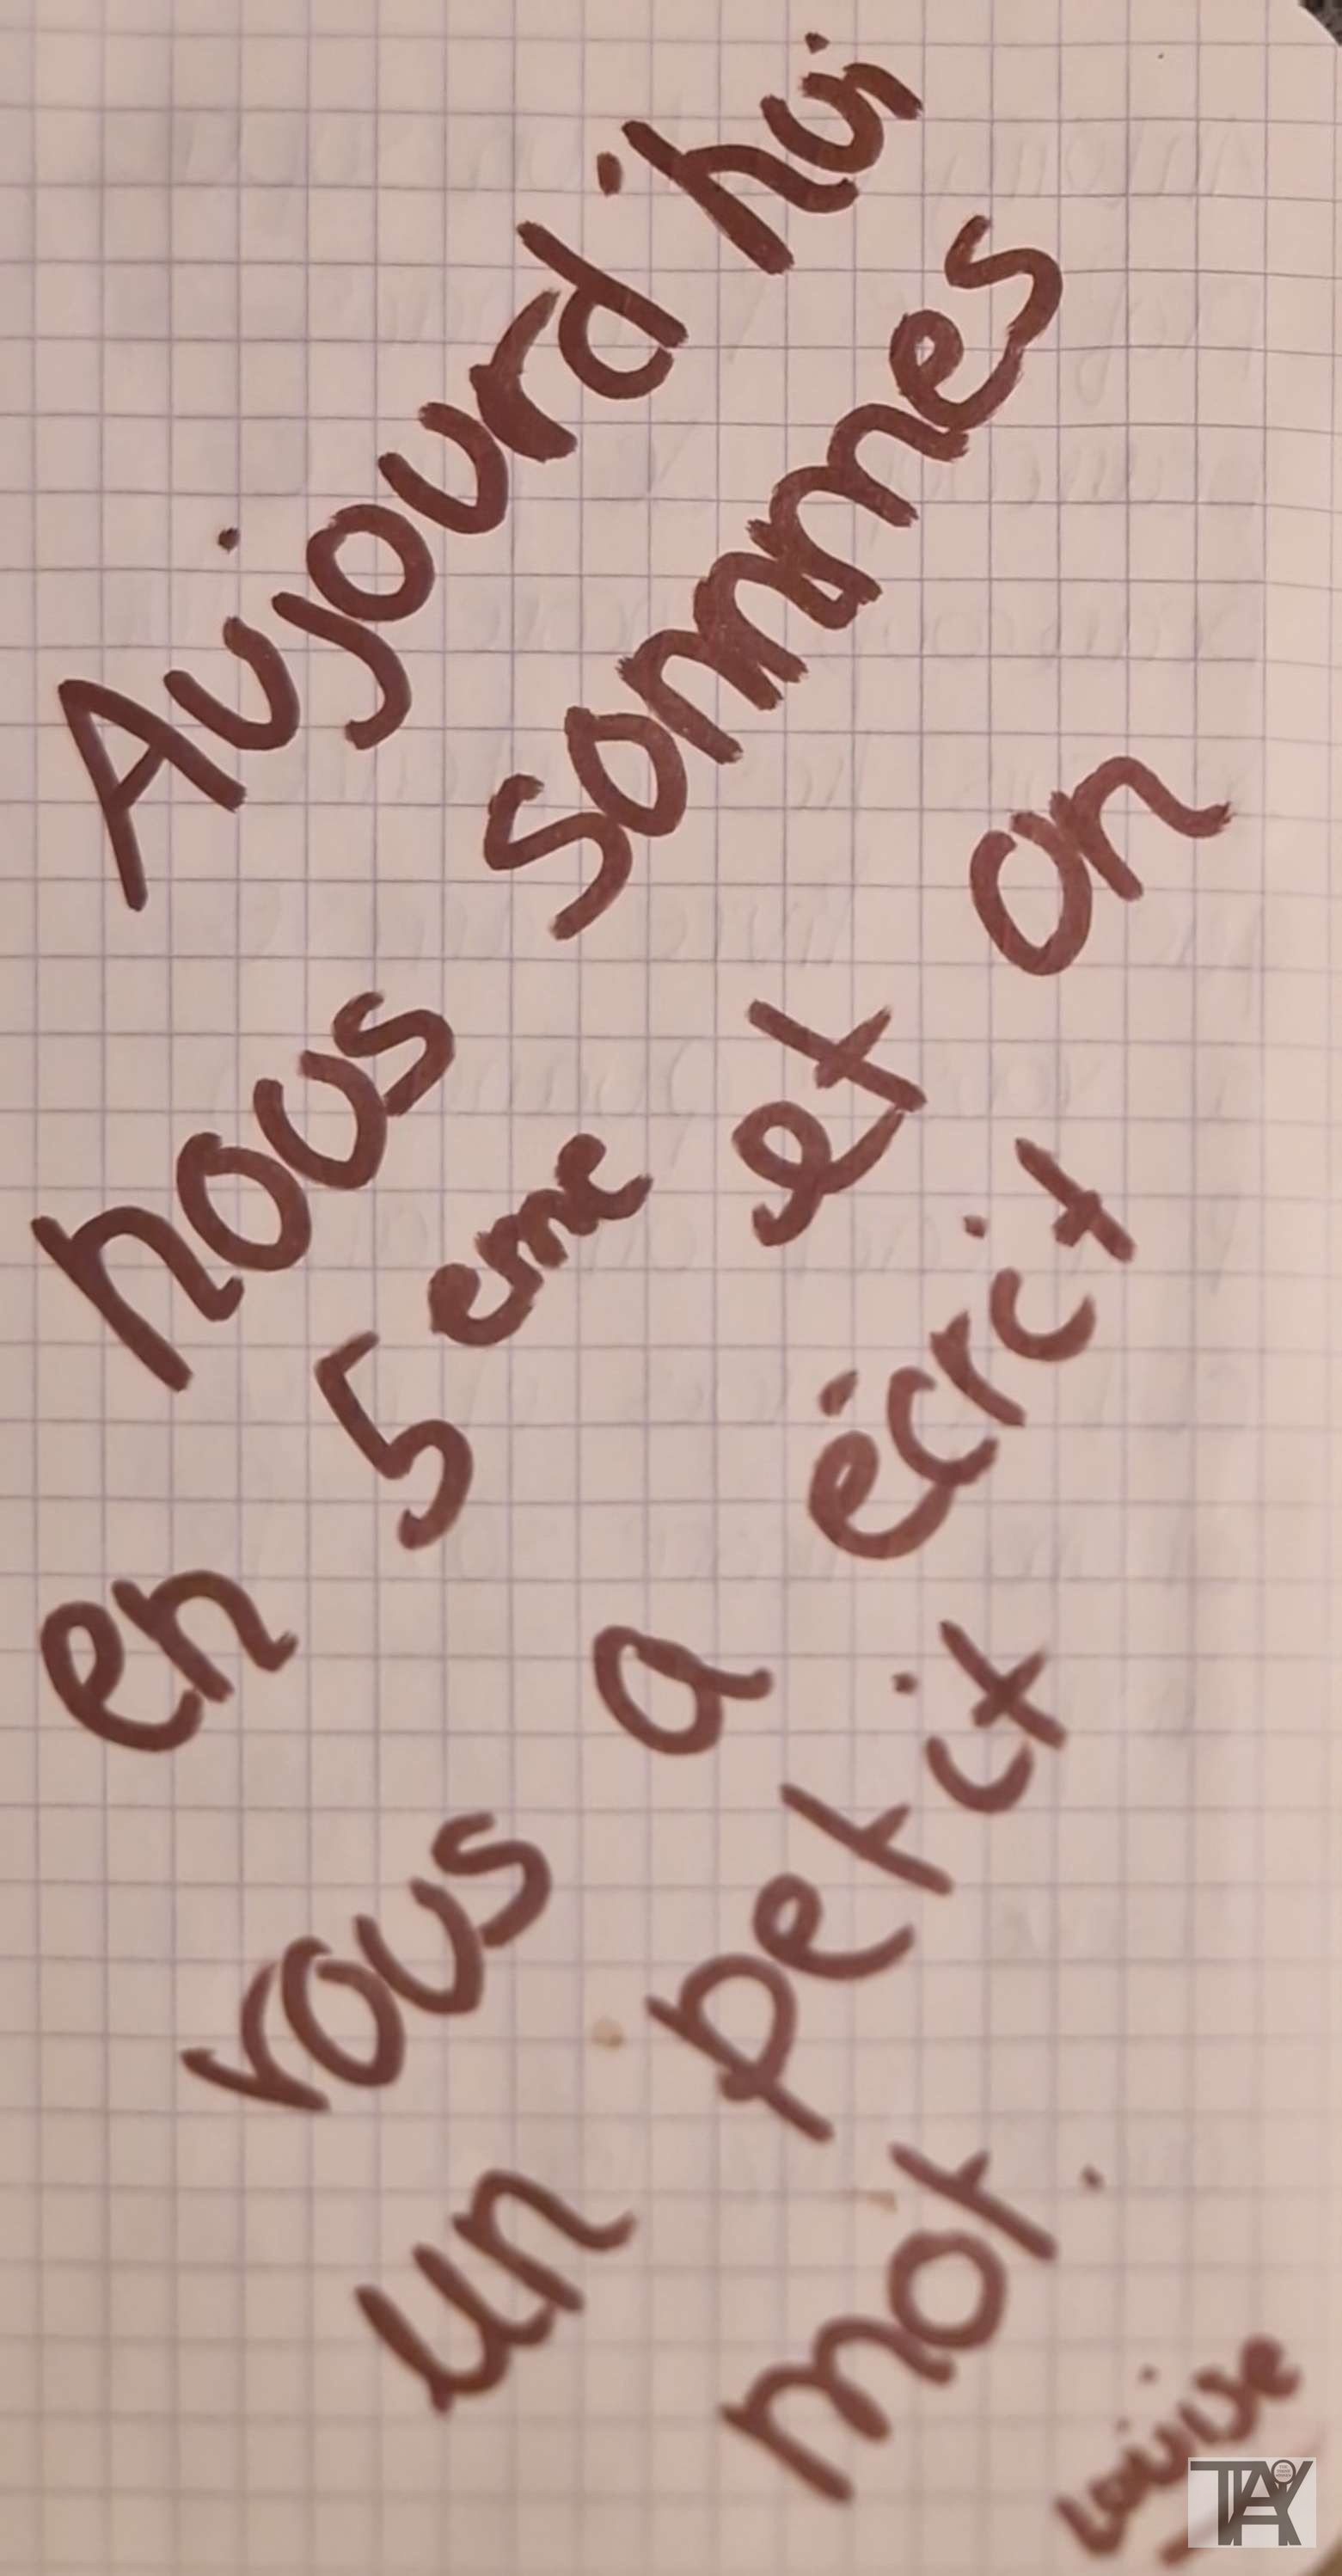 Aujourd'hui
nous sommes
en 5eme et on
vous a écrit
un petit
mot.
Louise
TAY